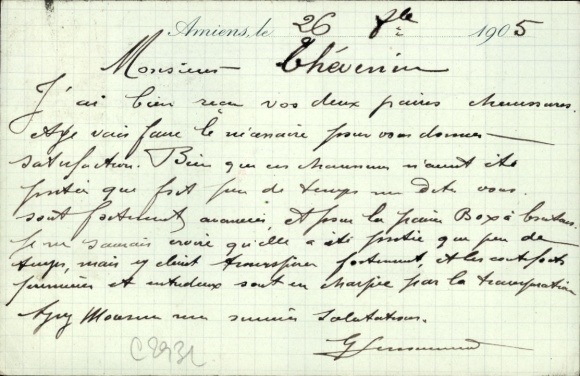 Amiens, le 26 1905
Monsieur Thévenin
J'ai bien reçu vos deux paires chaussures.
et je vais faire le nécessaire pour vous donner
satisfaction. Bien que ces chaussures n'aient été
portées que fort peu de temps me dites vous.
sont fortement avancées, et pour la paire Box à boutons.
je ne saurais croire qu'elle a été portée que peu de
temps, mais il doit transpirer fortement et les contreforts
premières et entredeux sont en charpie par la transpiration
Agréez Monsieur mes sincères salutations.
C 2931